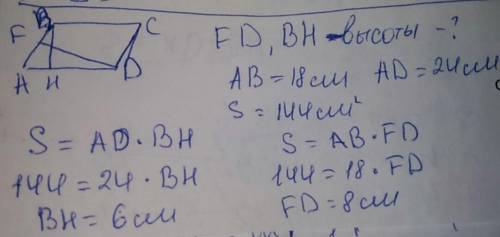 B C
F
A H D
FD, BH - высоты - ?
AB = 18 см AD = 24 см
S = 144 см²
S = AD · BH
144 = 24 · BH
BH = 6 см
S = AB · FD
144 = 18 · FD
FD = 8 см